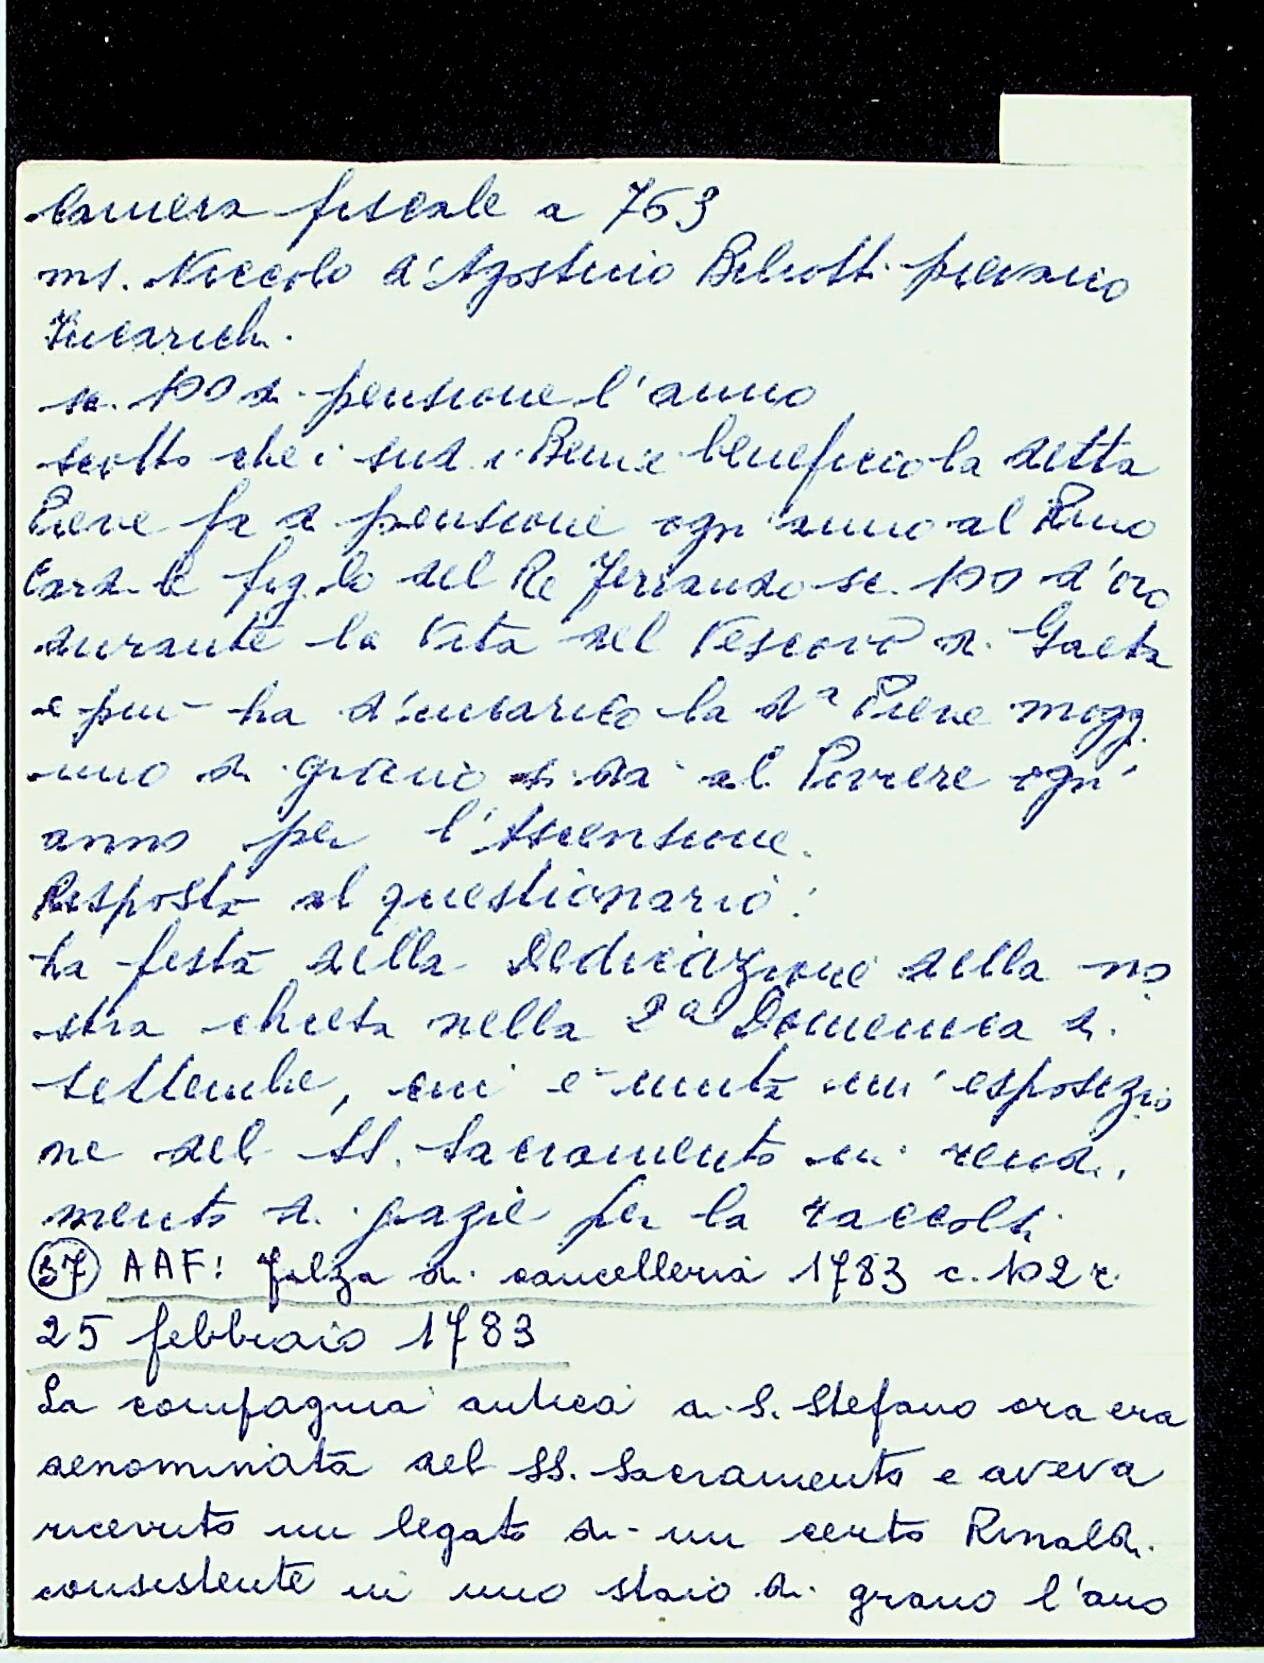 Camera fiscale a 763
ms. Niccolo d'Agostino Biliotti pievano
Incarichi.
sc. 100 di pensione l'anno
scotto che i sud.i Beni e beneficio la detta
Pieve fa di pensione ogni anno al Rmo
Card.le figlo del Re Ferrando sc. 100 d'oro
durante la Vita del Vescovo di Gaeta
e piu ha d'incarico la da Pieve mogg.
uno di grano si da al Poviere ogni
anno per l'Ascensione.
Risposta al questionario:
la festa della Dedicazione della no
stra chiesa nella 2a Domenica di
settembre, cui e' unita un'esposizio
ne del SS. Sacramento in rendi,
mento di grazie per la raccolti
37 AAF: Filza di cancelleria 1783 c. 102 r.
25 febbraio 1783
La compagnia antica di S. Stefano ora era
denominata del SS. Sacramento e aveva
ricevuto un legato di un certo Rinaldi
consistente in uno staio di grano l'ano